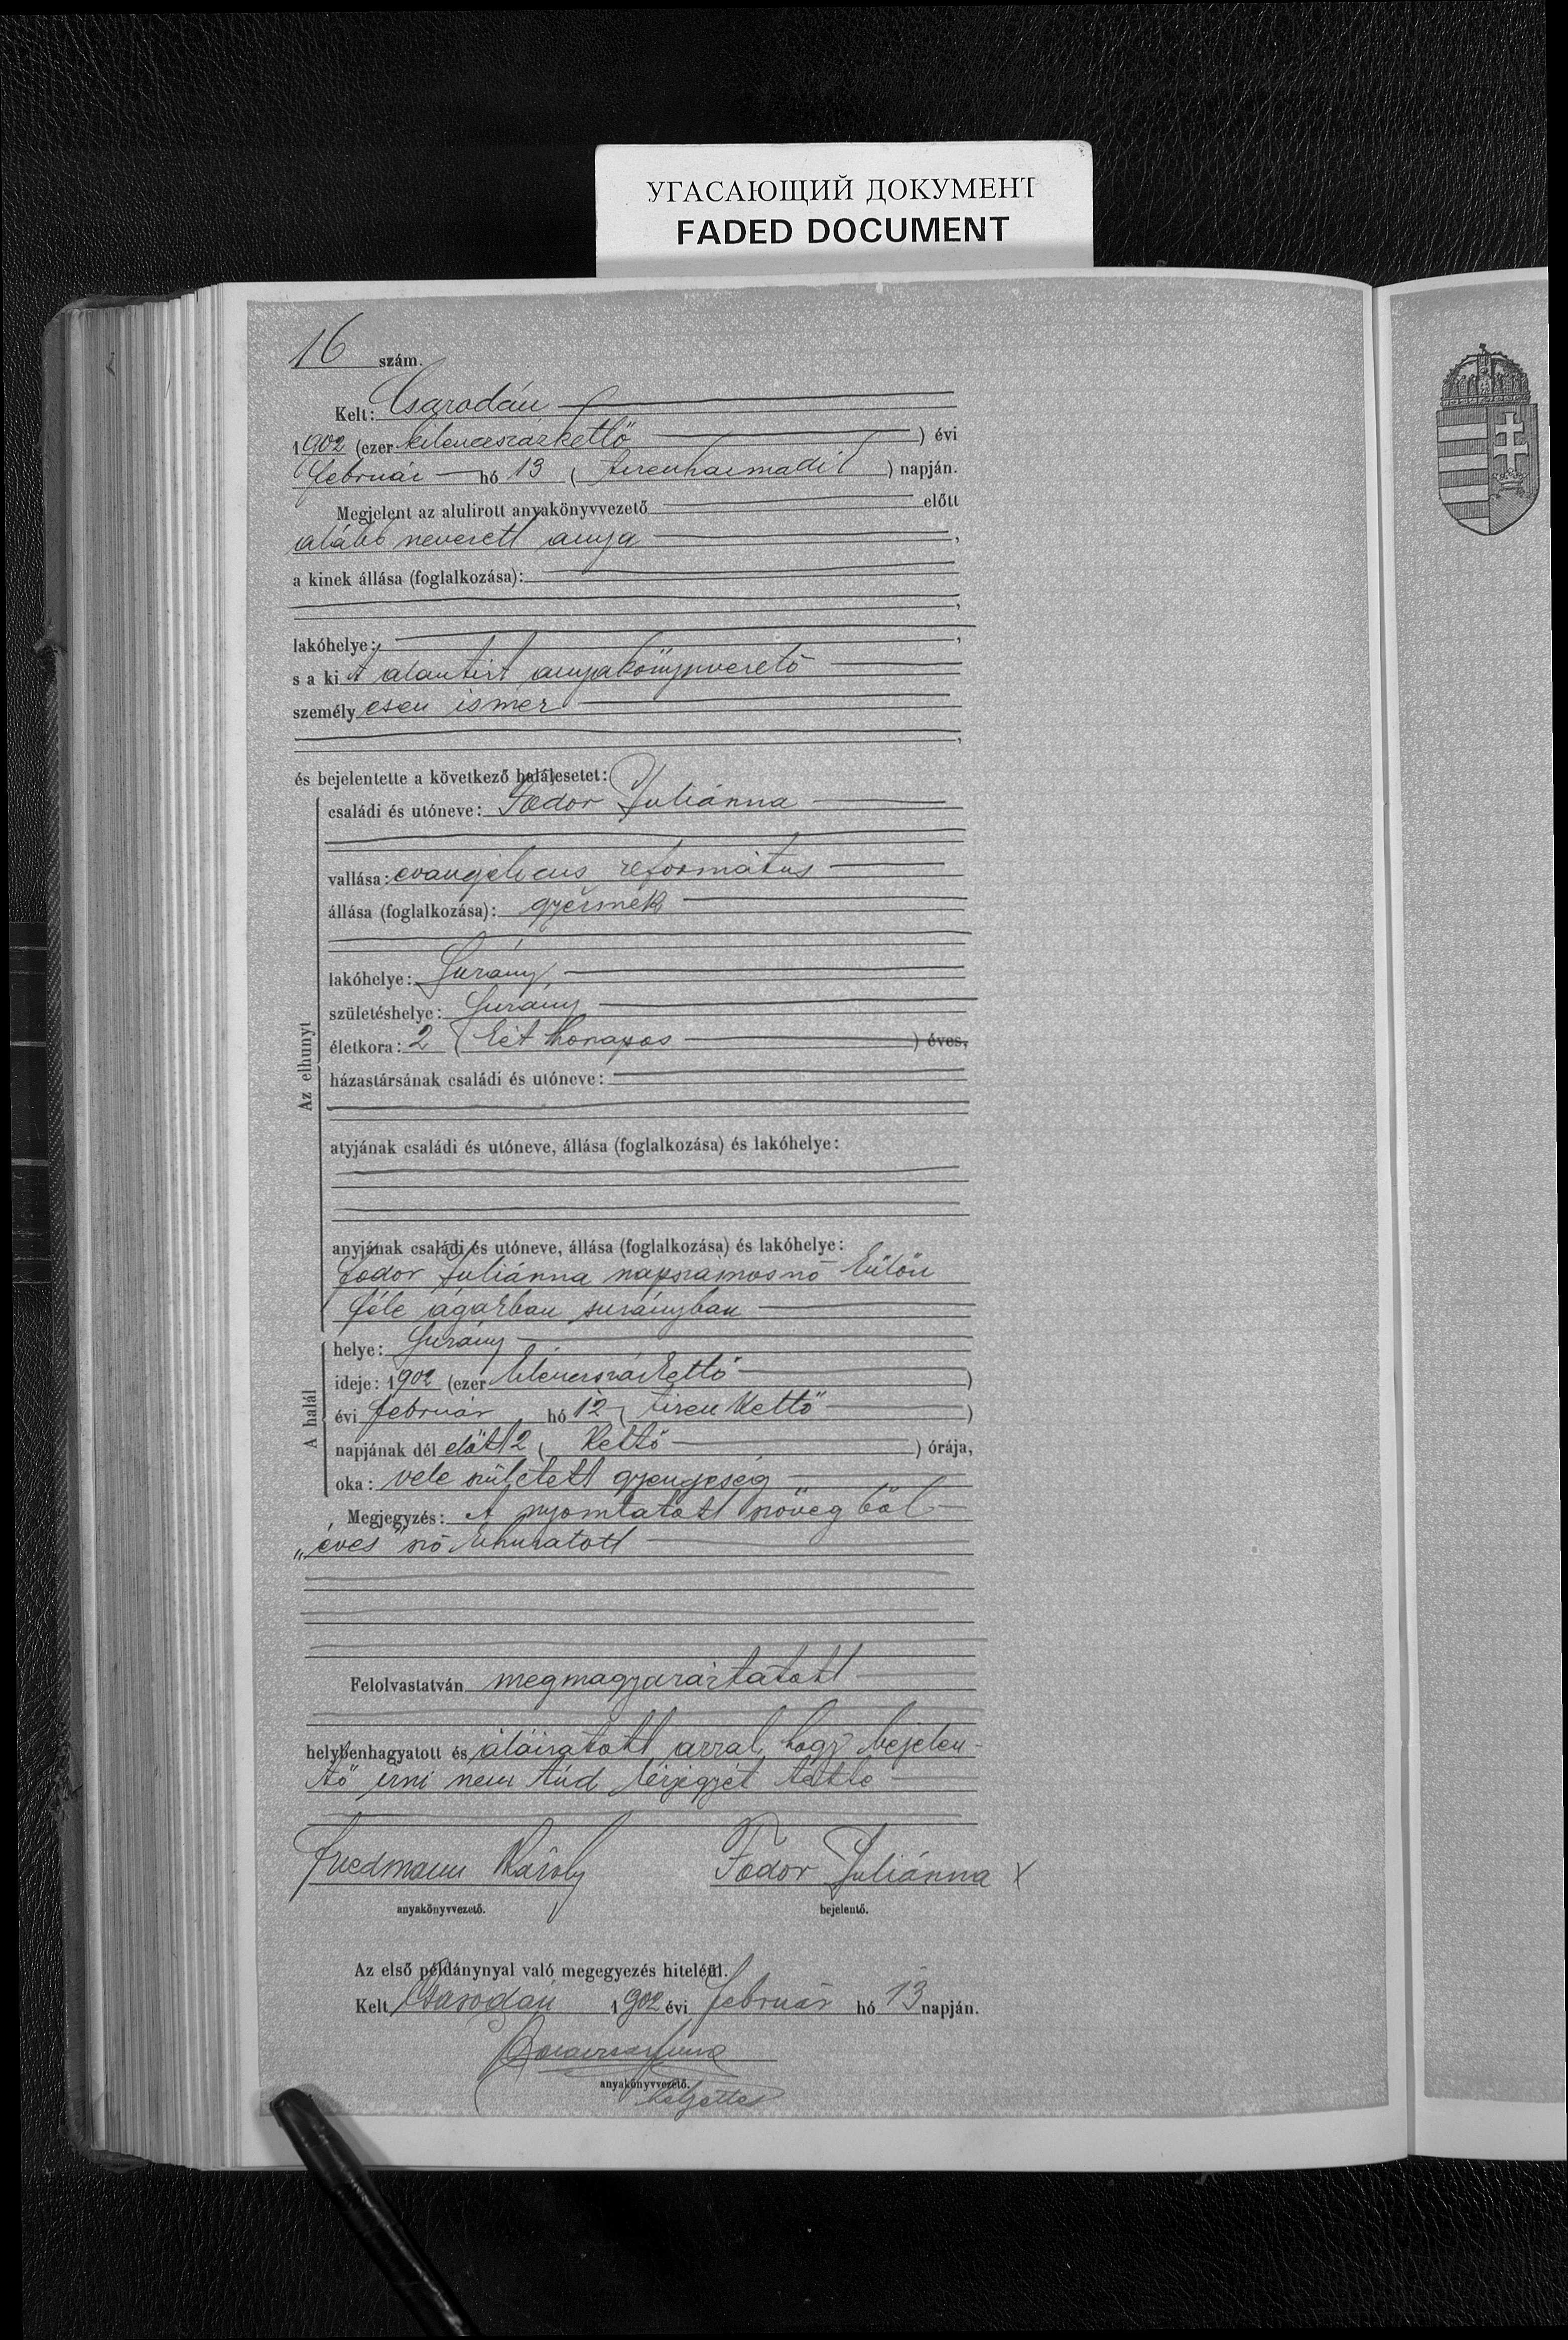 УГАСАЮЩИЙ ДОКУМЕНТ
FADED DOCUMENT
16 szám.
Kelt: Csarodán
1902 (ezer kilenczszázkettő ) évi
február hó 13 ( tizenharmadik ) napján.
Megjelent az alulirott anyakönyvvezető előtt
alább nevezett anya ,
a kinek állása (foglalkozása):
,
lakóhelye: ,
s a ki t alantirt anyakönyvvezető
személy esen ismer
,
és bejelentette a következő halálesetet:
Az elhunyt
családi és utóneve: Fodor Juliánna
vallása: evangelicus református
állása (foglalkozása): gyermek
lakóhelye: Surány
születéshelye: Surány
életkora: 2 ( két hónapos ) éves,
házastársának családi és utóneve:
atyjának családi és utóneve, állása (foglalkozása) és lakóhelye:
anyjának családi és utóneve, állása (foglalkozása) és lakóhelye:
Fodor Juliánna napszámosnő
féle surányban
A halál
helye: Surány
ideje: 1902 (ezer kilenczszázkettő )
évi február hó 12 ( tizenkettő )
napjának dél előtt 2 ( kettő ) órája,
oka: vele született gyengeség
Megjegyzés: A nyomtatott szöveg ből
„éves" szó kihuzatott
Felolvastatván megmagyaráztatott
helybenhagyatott és aláiratott azzal, hogy bejelen-
tő irni nem tud kézjegyét tette
Friedmann Károly Fodor Juliánna x
anyakönyvvezető. bejelentő.
Az első példánynyal való megegyezés hiteléül.
Kelt Csarodán 1902 évi február hó 13 napján.
anyakönyvvezető.
helyettes